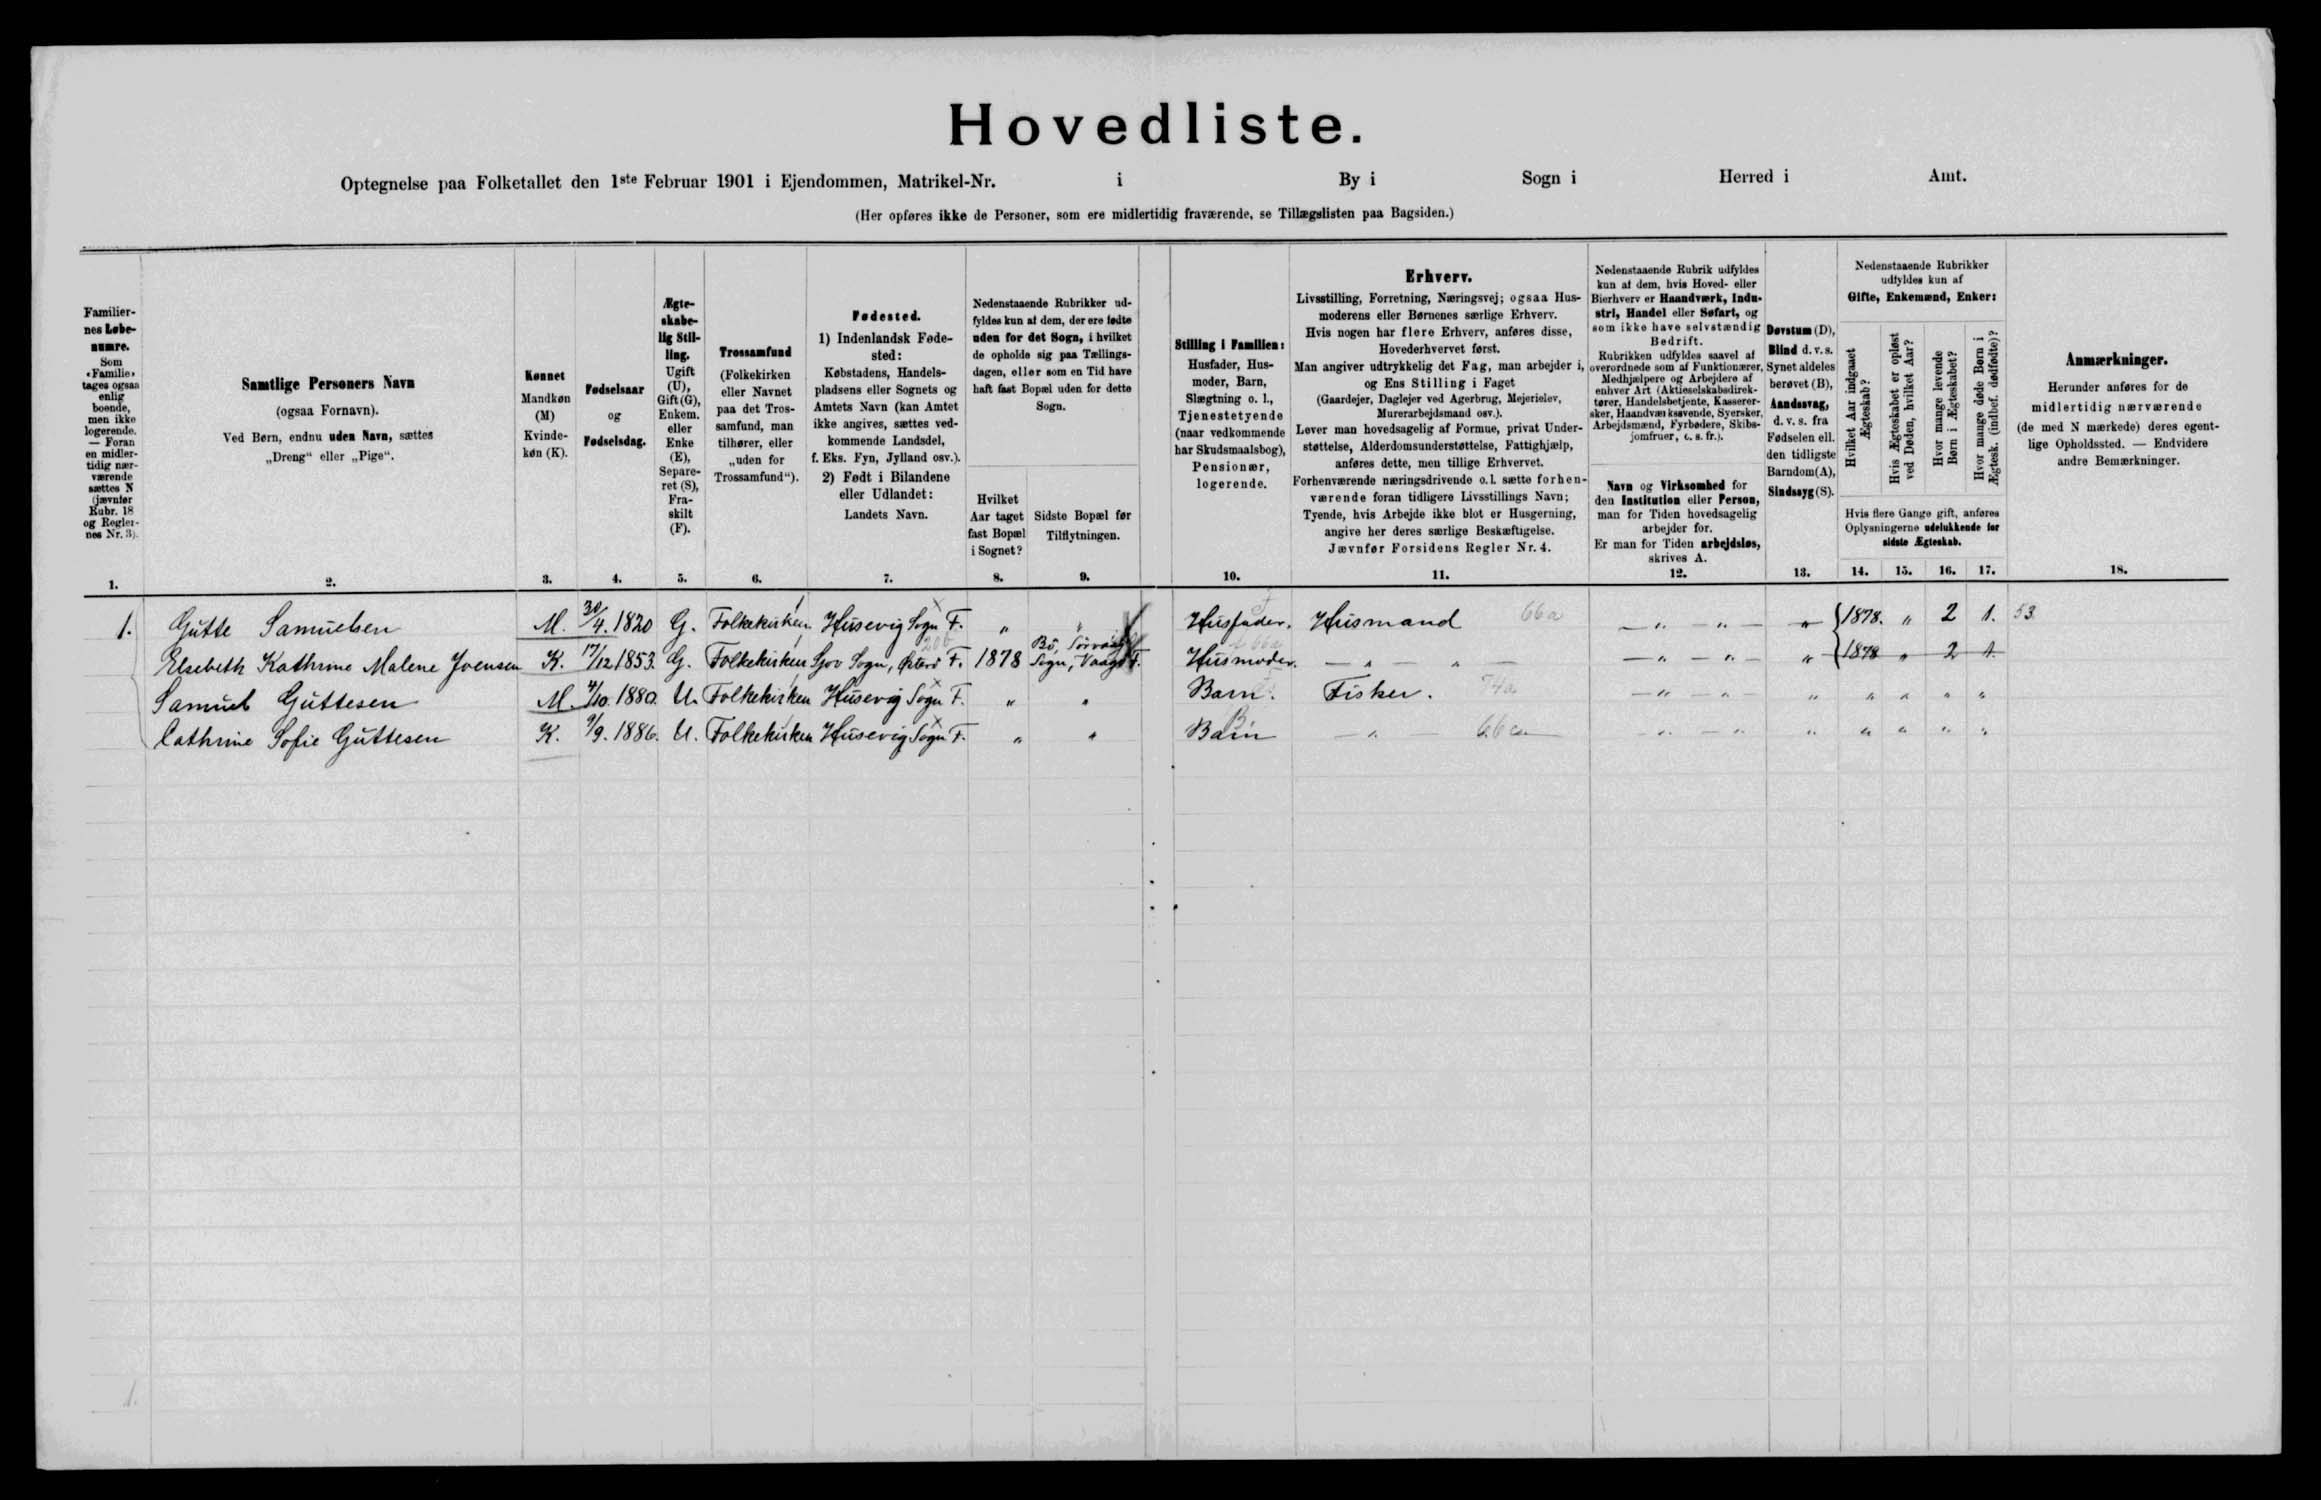 Hovedliste.
Optegnelse paa Folketallet den 1ste Februar 1901 i Ejendommen, Matrikel-Nr. i By i Sogn i Herred i Amt.
(Her opføres ikke de Personer, som ere midlertidig fraværende, se Tillægslisten paa Bagsiden.)
Familier-
nes Løbe-
numre.
Som
«Familie»
tages ogsaa
enlig
boende,
men ikke
logerende.
— Foran
en midler-
tidig nær-
værende
sættes N
(jævnfør
Rubr. 18
og Regler-
nes Nr. 3).
1.
Samtlige Personers Navn
(ogsaa Fornavn).
Ved Børn, endnu uden Navn, sættes
„Dreng“ eller „Pige“.
2.
Kønnet
Mandkøn
(M)
Kvinde-
køn (K).
3.
Fødselsaar
og
Fødselsdag.
4.
Ægte-
skabe-
lig Stil-
ling.
Ugift
(U),
Gift (G),
Enkem.
eller
Enke
(E),
Separe-
ret (S),
Fra-
skilt
(F).
5.
Trossamfund
(Folkekirken
eller Navnet
paa det Tros-
samfund, man
tilhører, eller
„uden for
Trossamfund“).
6.
Fødested.
1) Indenlandsk Føde-
sted:
Købstadens, Handels-
pladsens eller Sognets og
Amtets Navn (kan Amtet
ikke angives, sættes ved-
kommende Landsdel,
f. Eks. Fyn, Jylland osv.).
2) Født i Bilandene
eller Udlandet:
Landets Navn.
7.
Nedenstaaende Rubrikker ud-
fyldes kun af dem, der ere fødte
uden for det Sogn, i hvilket
de opholde sig paa Tællings-
dagen, eller som en Tid have
haft fast Bopæl uden for dette
Sogn.
Hvilket
Aar taget
fast Bopæl
i Sognet?
8.
Sidste Bopæl før
Tilflytningen.
9.
Stilling i Familien:
Husfader, Hus-
moder, Barn,
Slægtning o. l.,
Tjenestetyende
(naar vedkommende
har Skudsmaalsbog),
Pensionær,
logerende.
10.
Erhverv.
Livsstilling, Forretning, Næringsvej; ogsaa Hus-
moderens eller Børnenes særlige Erhverv.
Hvis nogen har flere Erhverv, anføres disse,
Hovederhvervet først.
Man angiver udtrykkelig det Fag, man arbejder i,
og Ens Stilling i Faget
(Gaardejer, Daglejer ved Agerbrug, Mejerielev,
Murerarbejdsmand osv.).
Lever man hovedsagelig af Formue, privat Under-
støttelse, Alderdomsunderstøttelse, Fattighjælp,
anføres dette, men tillige Erhvervet.
Forhenværende næringsdrivende o. l. sætte forhen-
værende foran tidligere Livsstillings Navn;
Tyende, hvis Arbejde ikke blot er Husgerning,
angive her deres særlige Beskæftigelse.
Jævnfør Forsidens Regler Nr. 4.
11.
Nedenstaaende Rubrik udfyldes
kun af dem, hvis Hoved- eller
Bierhverv er Haandværk, Indu-
stri, Handel eller Søfart, og
som ikke have selvstændig
Bedrift.
Rubrikken udfyldes saavel af
overordnede som af Funktionærer,
Medhjælpere og Arbejdere af
enhver Art (Aktieselskabsdirek-
tører, Handelsbetjente, Kasserer-
sker, Haandværksvende, Syersker,
Arbejdsmænd, Fyrbødere, Skibs-
jomfruer, o. s. fr.).
Navn og Virksomhed for
den Institution eller Person,
man for Tiden hovedsagelig
arbejder for.
Er man for Tiden arbejdsløs,
skrives A.
12.
Døvstum (D),
Blind d. v. s.
Synet aldeles
berøvet (B),
Aandssvag,
d. v. s. fra
Fødselen ell.
den tidligste
Barndom (A),
Sindssyg (S).
13.
Nedenstaaende Rubrikker
udfyldes kun af
Gifte, Enkemænd, Enker:
Hvilket Aar indgaaet
Ægteskab?
Hvis Ægteskabet er opløst
ved Døden, hvilket Aar?
Hvor mange levende
Børn i Ægteskabet?
Hvor mange døde Børn i
Ægtesk. (indbef. dødfødte)?
Hvis flere Gange gift, anføres
Oplysningerne udelukkende for
sidste Ægteskab.
14. 15. 16. 17.
Anmærkninger.
Herunder anføres for de
midlertidig nærværende
(de med N mærkede) deres egent-
lige Opholdssted. — Endvidere
andre Bemærkninger.
18.
1. Gutte Samuelsen M. 30/4. 1820 G. Folkekirken Husevig Sogn F. „ „ Husfader. Husmand 66a — „ — „ — „ 1878. „ 2 1. 53
Elsebeth Kathrine Malene Joensen K. 17/12 1853. G. Folkekirken Sjov Sogn, Østerø F. 1878 Bö, Sörvaag Sogn, Vaagø F. Husmoder. — „ — „ — — „ — „ — „ 1878 „ 2 1.
Samuel Guttesen M. 4/10. 1880. U. Folkekirken Husevig Sogn F. „ „ Barn. Fisker. 74a — „ — „ — „ „ „ „ „
Cathrine Sofie Guttesen K. 9/9. 1886. U. Folkekirken Husevig Sogn F. „ „ Barn — „ — 66a — „ — „ „ „ „ „ „
1.